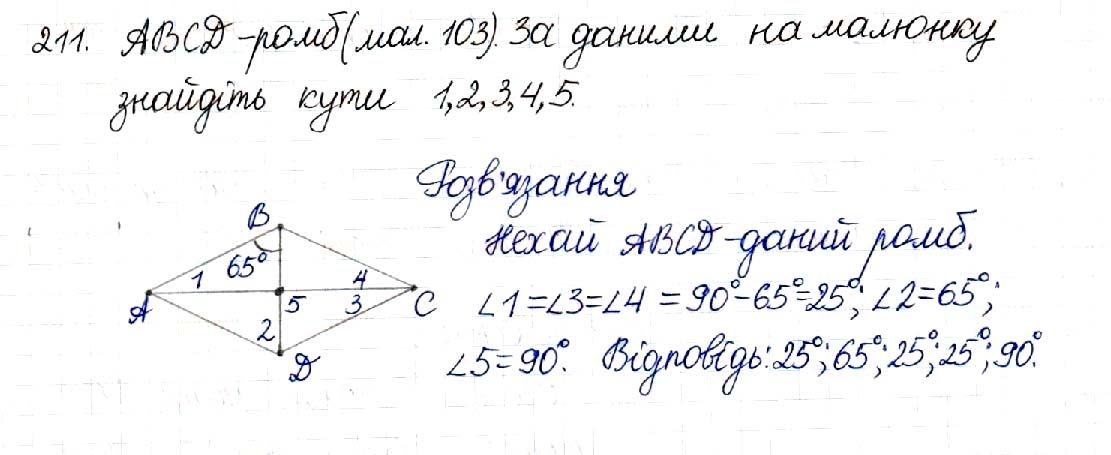 211. ABCD-ромб (мал. 103). За даними на малюнку
знайдіть кути 1,2,3,4,5.
Розв'язання
Нехай ABCD-даний ромб.
∠1=∠3=∠4=90°-65°=25°; ∠2=65°;
∠5=90°. Відповідь: 25°; 65°; 25°; 25°; 90°.
B
65°
1
4
A
5
3
C
2
D